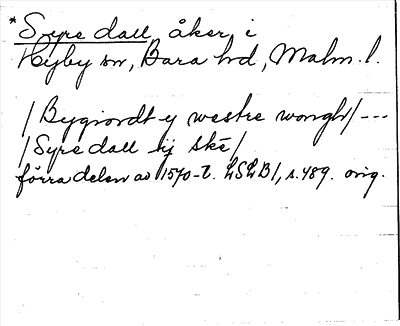 *Syre dall, åker, i
Hyby sn, Bara hd, Malm. l.
/Bygiordt y westre wongh/ ---
/Syre dall ij skē/
förra delen av 1570-t. LSLB1, s. 489. orig.